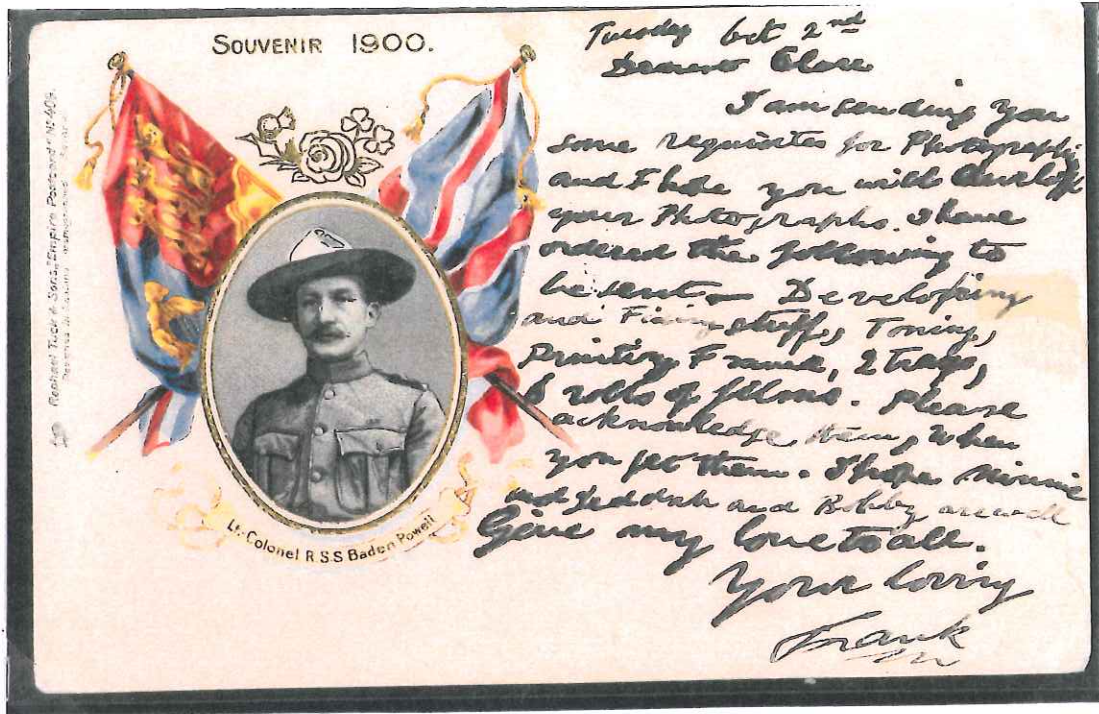 SOUVENIR 1900.
Raphael Tuck & Sons' "Empire Postcard" No 409.
Lt. Colonel R.S.S Baden Powell
Tuesday Oct 2nd
Dearest
I am sending you
some requisites for Photography
and I hope you will develop
your Photographs. I have
ordered the following to
be sent - Developing
and Fixing stuff, Toning,
Printing Frame, 2 trays,
6 rolls of films. Please
acknowledge them, when
you get them. I hope Minnie
and and Bobby are well
Give my love to all.
Your loving
Frank